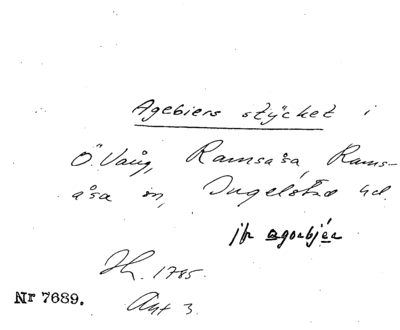 Agebiers stÿcket i
Ö. Vång, Ramsåsa, Rams-
åsa sn, Ingelstad hd.
jfr agerbjer
Hh. 1785.
Akt 3.
Nr 7689.